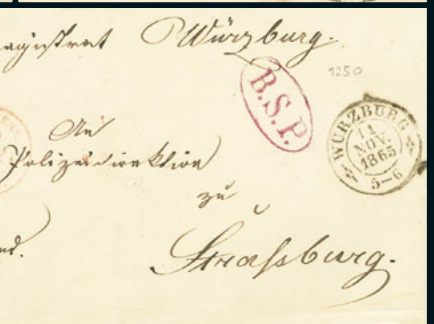 Magistrat Würzburg.
B.S.P.
1250
WÜRZBURG
11
NOV.
1865
5-6
An
Polizeidirektion
zu
Straßburg.